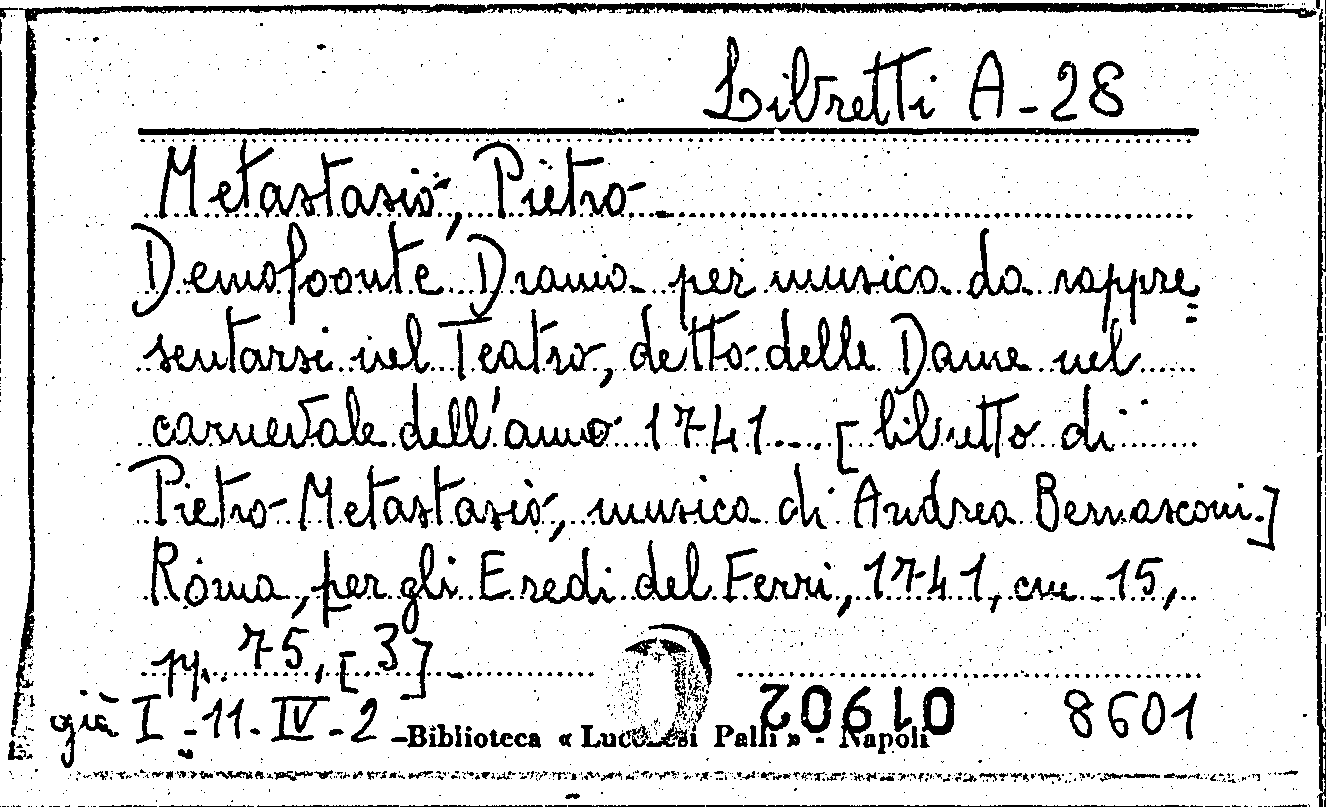 Libretti A-28
Metastasio, Pietro
Demofoonte Drama per musica da rappre=
sentarsi nel Teatro, detto delle Dame nel
carnevale dell'anno 1741... [libretto di
Pietro Metastasio, musica di Andrea Bernasconi.]
Roma, per gli Eredi del Ferri, 1741, cm. 15,
pp. 75, [3]
già I-11-IV-2 -Biblioteca « Lucchesi Palli » - Napoli 8601
01902